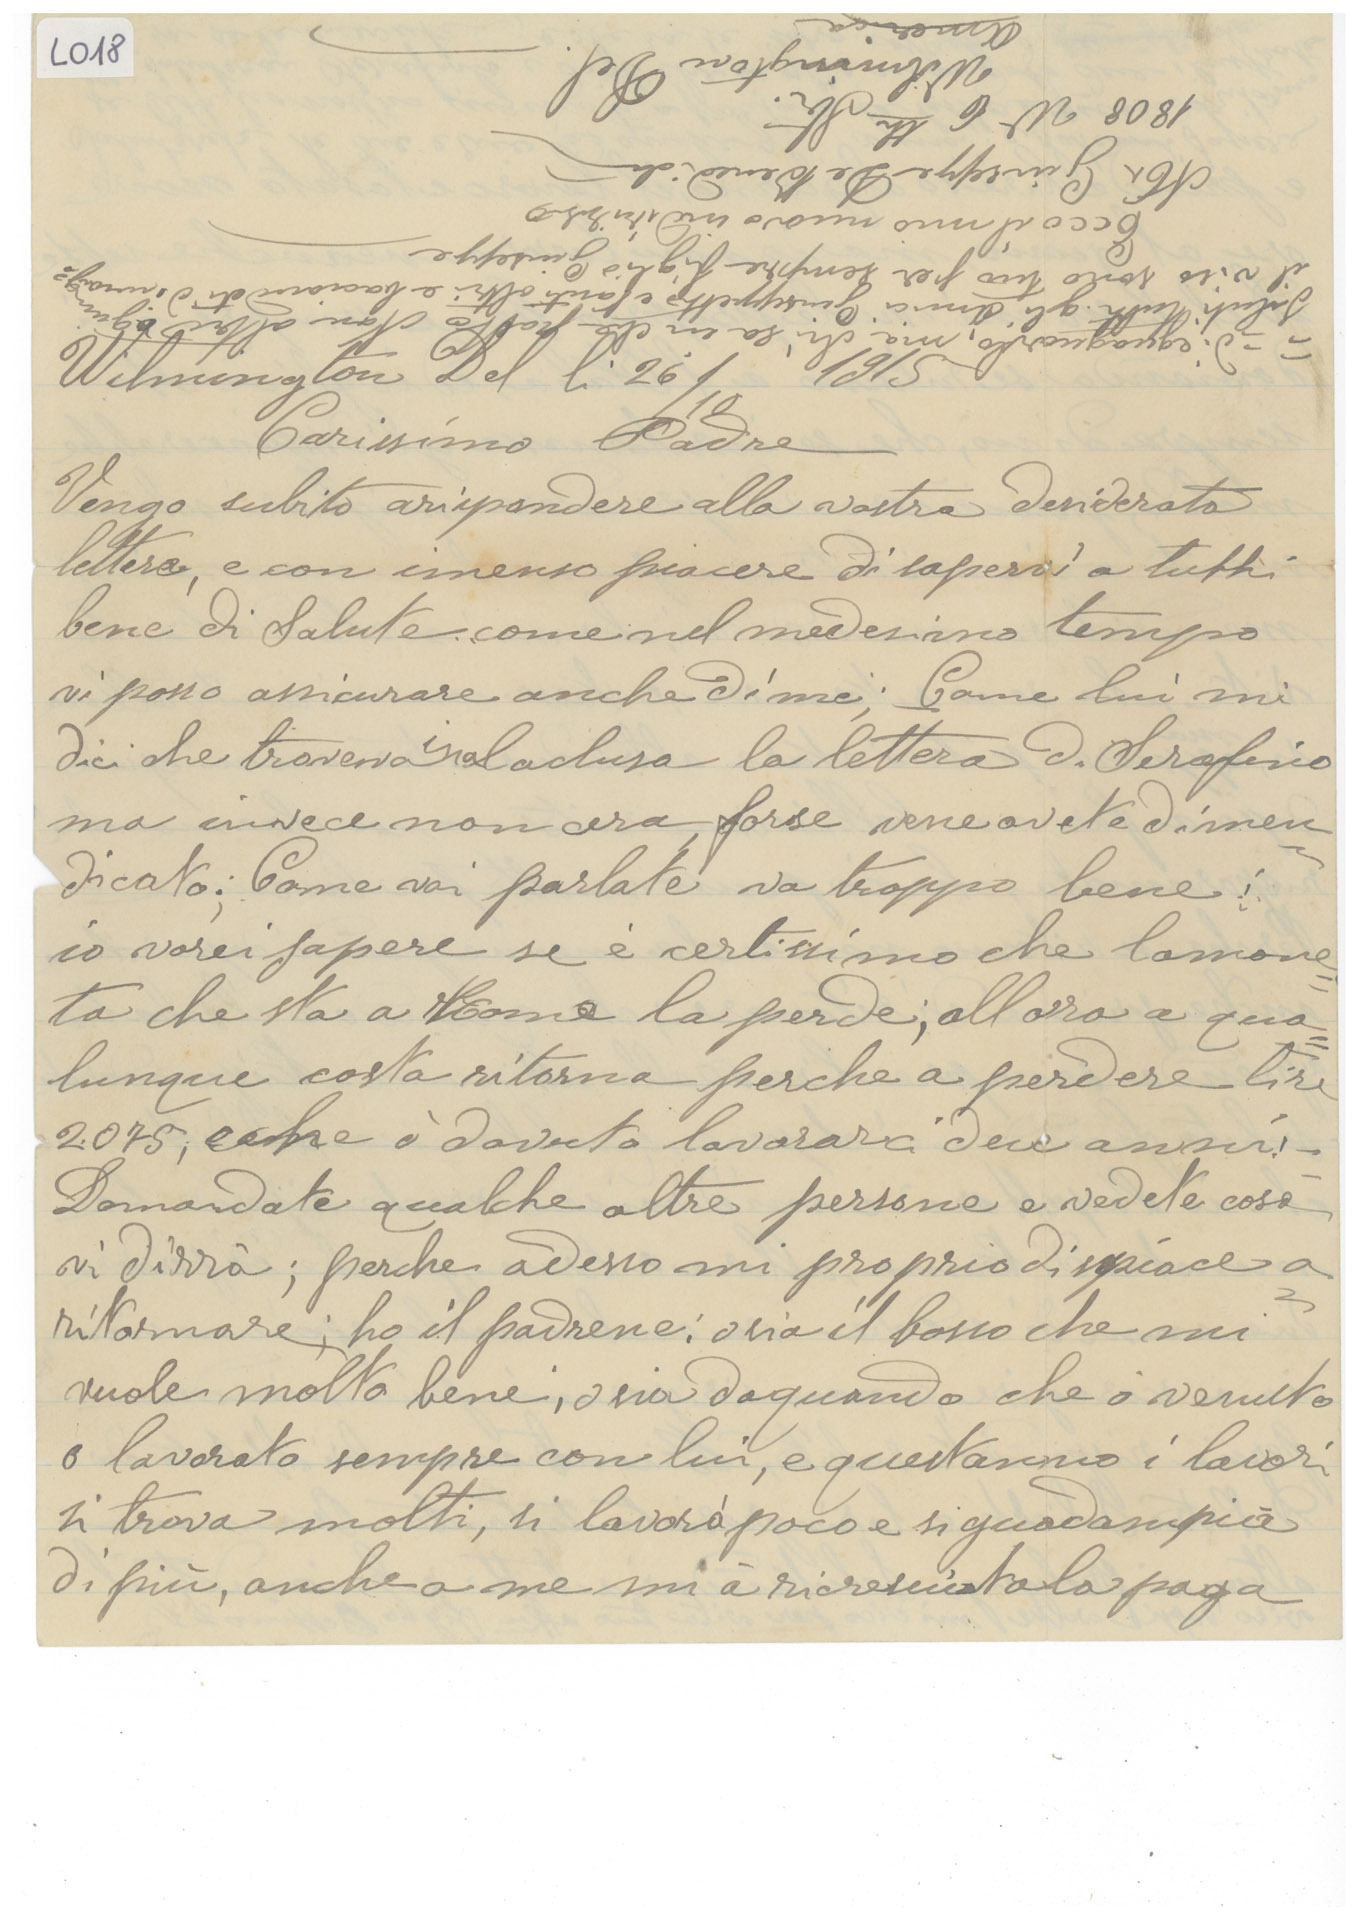 L018
Wilmington Del li 26/10 1915
Carissimo Padre
Vengo subito arispondere alla vostra desiderata
lettera, e con imenso piacere di sapervi a tutti
bene di Salute come nel medesimo tempo
vi posso assicurare anche di me; Come lui mi
dici che trovava laclusa la lettera di Serafino
ma invece non cera, forse vene avete dimen
dicato; Come voi parlate va troppo bene;
io vorei sapere se è certissimo che lamone=
ta che sta a Roma la perde; allora a qua=
lunque costa ritorna perche a perdere lire
2.075, che ò dovuto lavorarci due anni! -
Domandate qualche altre persone e vedete cosa
vi dirrà; perche adesso mi proprio dispiace a
ritornare; ho il padrene; osia il bosso che mi
vuole molto bene, osia daquando che ò venuto
o lavorato sempre con lui, e questanno i lavori
si trova molti, si lavora poco e si guadampia
di più, anche a me mi à ricresciuta la paga
= di equaguarlo, ma chi sa in che
Saluti tutti gli amici Giuseppetto e tanti altri e baciandoti
il viso sono tuo per sempre figlio Giuseppe
Ecco il mio nuovo indirizzo
Mr Giuseppe De Benedictis
1808 W 6 th Str.
Wilmington Del.
America